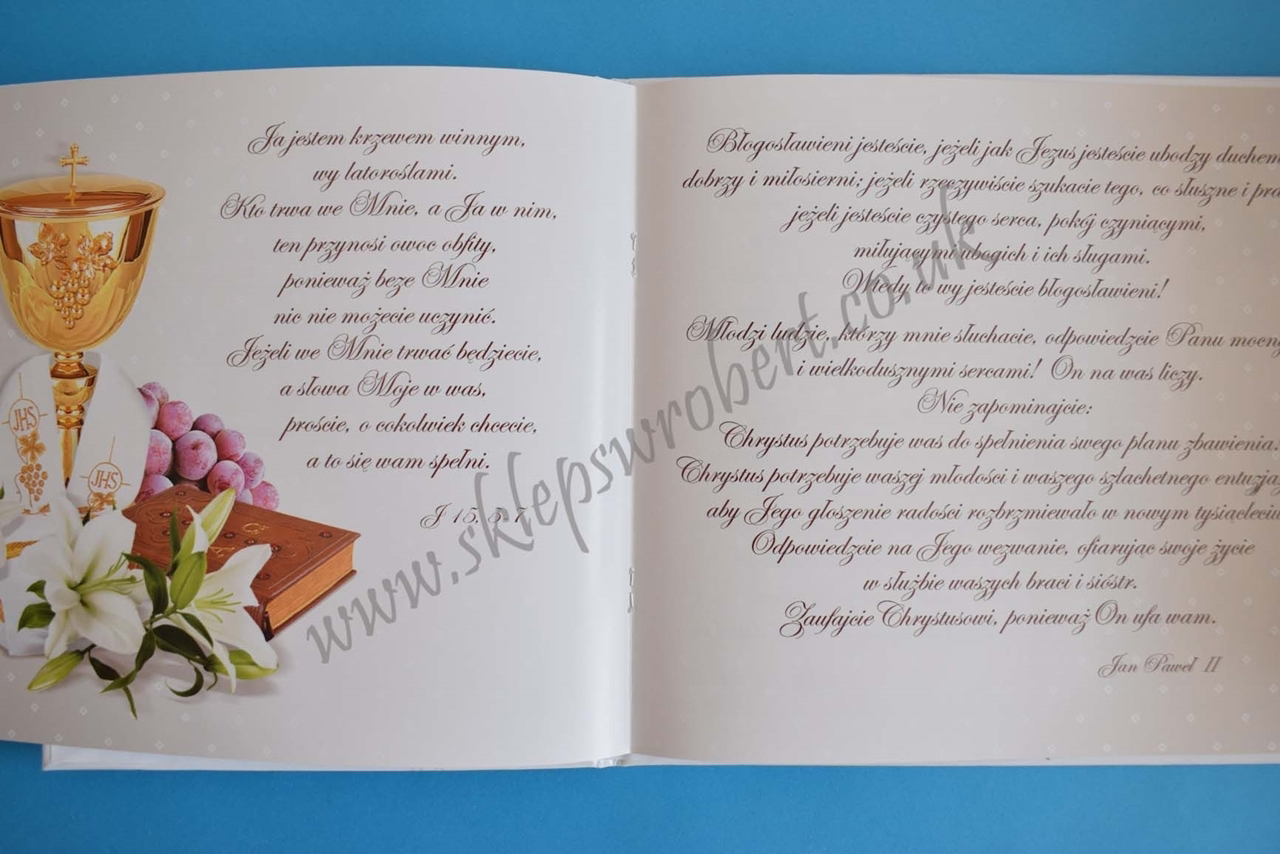 JHS
JHS
Ja jestem krzewem winnym,
wy latoroślami.
Kto trwa we Mnie, a Ja w nim,
ten przynosi owoc obfity,
ponieważ beze Mnie
nic nie możecie uczynić.
Jeżeli we Mnie trwać będziecie,
a słowa Moje w was,
proście, o cokolwiek chcecie,
a to się wam spełni.
J 15, 5-7
Błogosławieni jesteście, jeżeli jak Jezus jesteście ubodzy duchem
dobrzy i miłosierni; jeżeli rzeczywiście szukacie tego, co słuszne i
jeżeli jesteście czystego serca, pokój czyniącymi,
miłującymi ubogich i ich sługami.
Wtedy to wy jesteście błogosławieni!
Młodzi ludzie, którzy mnie słuchacie, odpowiedzcie Panu
i wielkodusznymi sercami! On na was liczy.
Nie zapominajcie:
Chrystus potrzebuje was do spełnienia swego planu zbawienia.
Chrystus potrzebuje waszej młodości i waszego szlachetnego
aby Jego głoszenie radości rozbrzmiewało w nowym
Odpowiedzcie na Jego wezwanie, ofiarując swoje życie
w służbie waszych braci i sióstr.
Zaufajcie Chrystusowi, ponieważ On ufa wam.
Jan Paweł II
www.sklepswrobert.co.uk